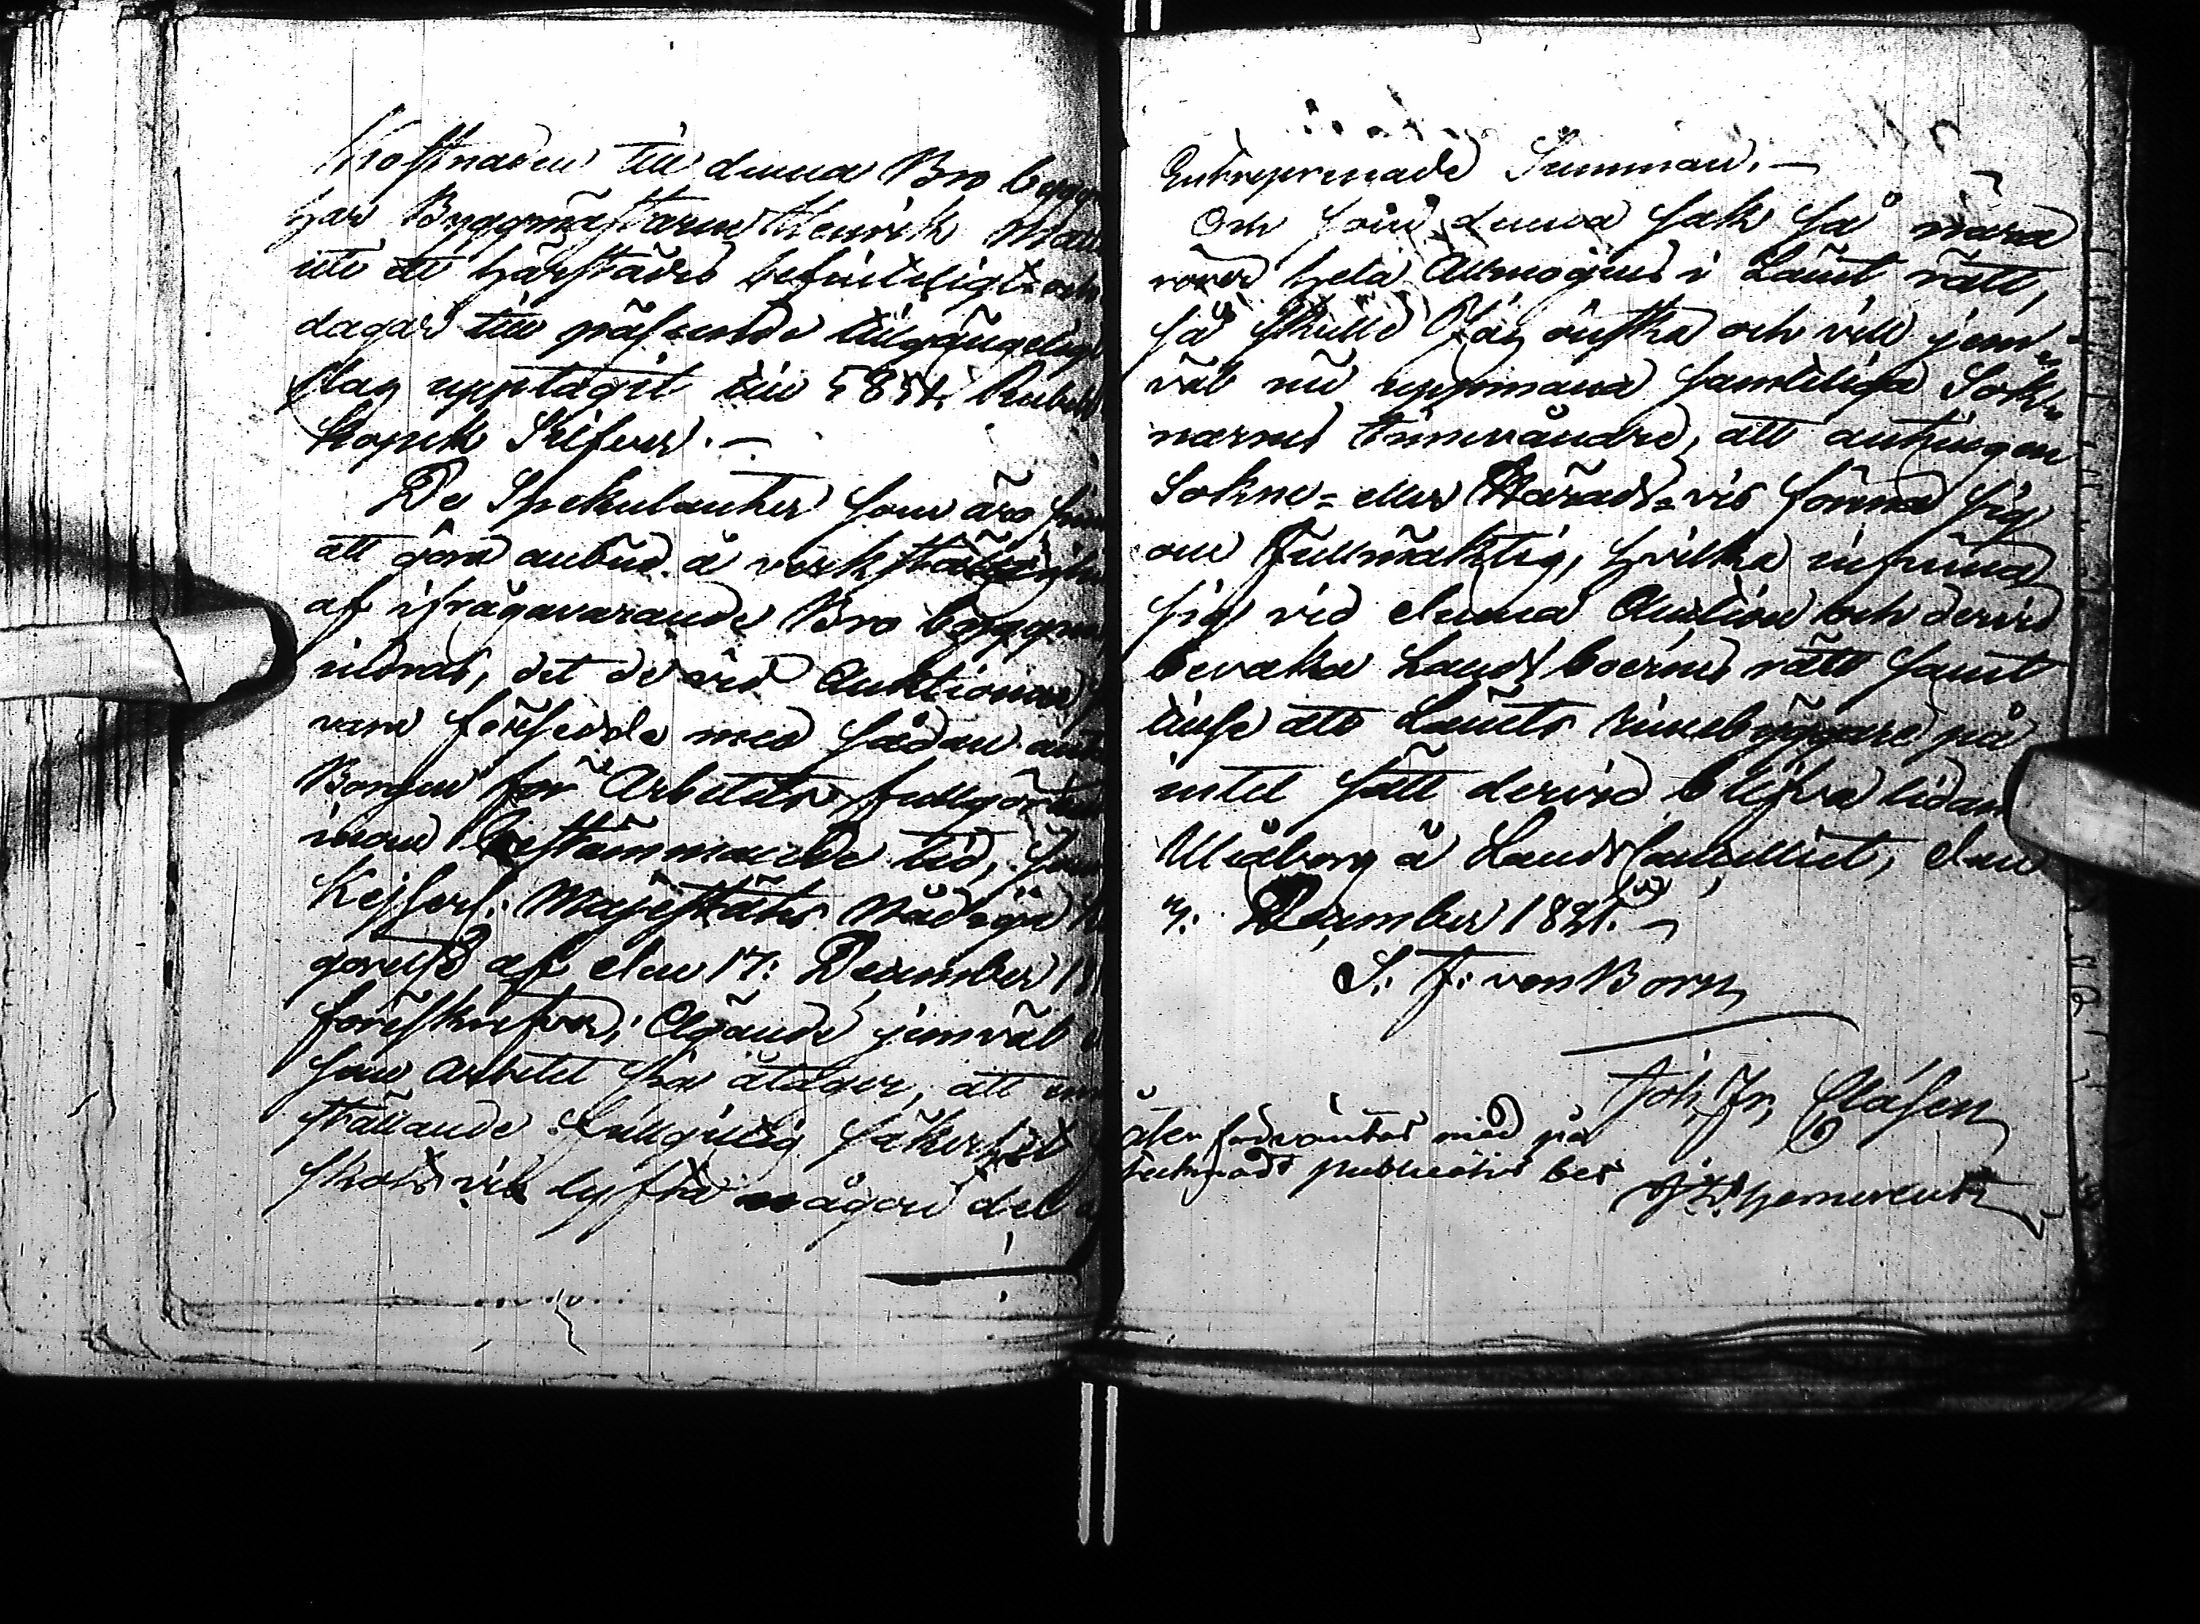 Kostnaden till denna Bro bygg
har Byggmästaren Henrik
uti ett härstädes befinteligt och
dagar till påseende tillgängeligt
slag upptagit till 5854. Rubel
Kopek Silfver. —
De Spekulanter som äro
att göra anbud å verkställigheten
af ifrågavarande Bro byggna
indras, det de vid Auktionen
vara försedde med sådan
Borgen för Arbetets fullgörande
inom bestämmande tid, som
Kejserl: Majestäts Nådiga
görelse af den 17: December 18
föreskrifver; Ägande jemväl
som arbetet sig åtager, att
ställande fullgiltig säkerhet
skotts vis lyfta någon del
Entreprenade Summan. —
Och som denna sak så nära
rörer hela Allmogens i Länet rätt,
så skulle Jag önska och vill jem=
väl nu uppmana samteliga Sok=
narnes Innevånare, att antingen
Sokne= eller Härads=vis förena sig
om Fullmäktig, hvilka infinna
sig vid denna Auction och dervid
bevaka Landtboernes rätt samt
tillse att Länets Innebyggare på
intet sätt dervid blifva lidan
Uleåborg å Landscancelliet, den
3. December 1821. —
S. F. von Born
Joh. Fr. Clasen
åter förväntas med på
tecknadt publications bevis